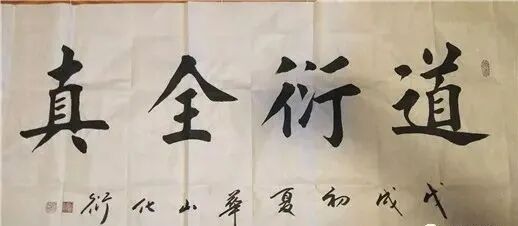 道衍全真
戊戌初夏华山化衍